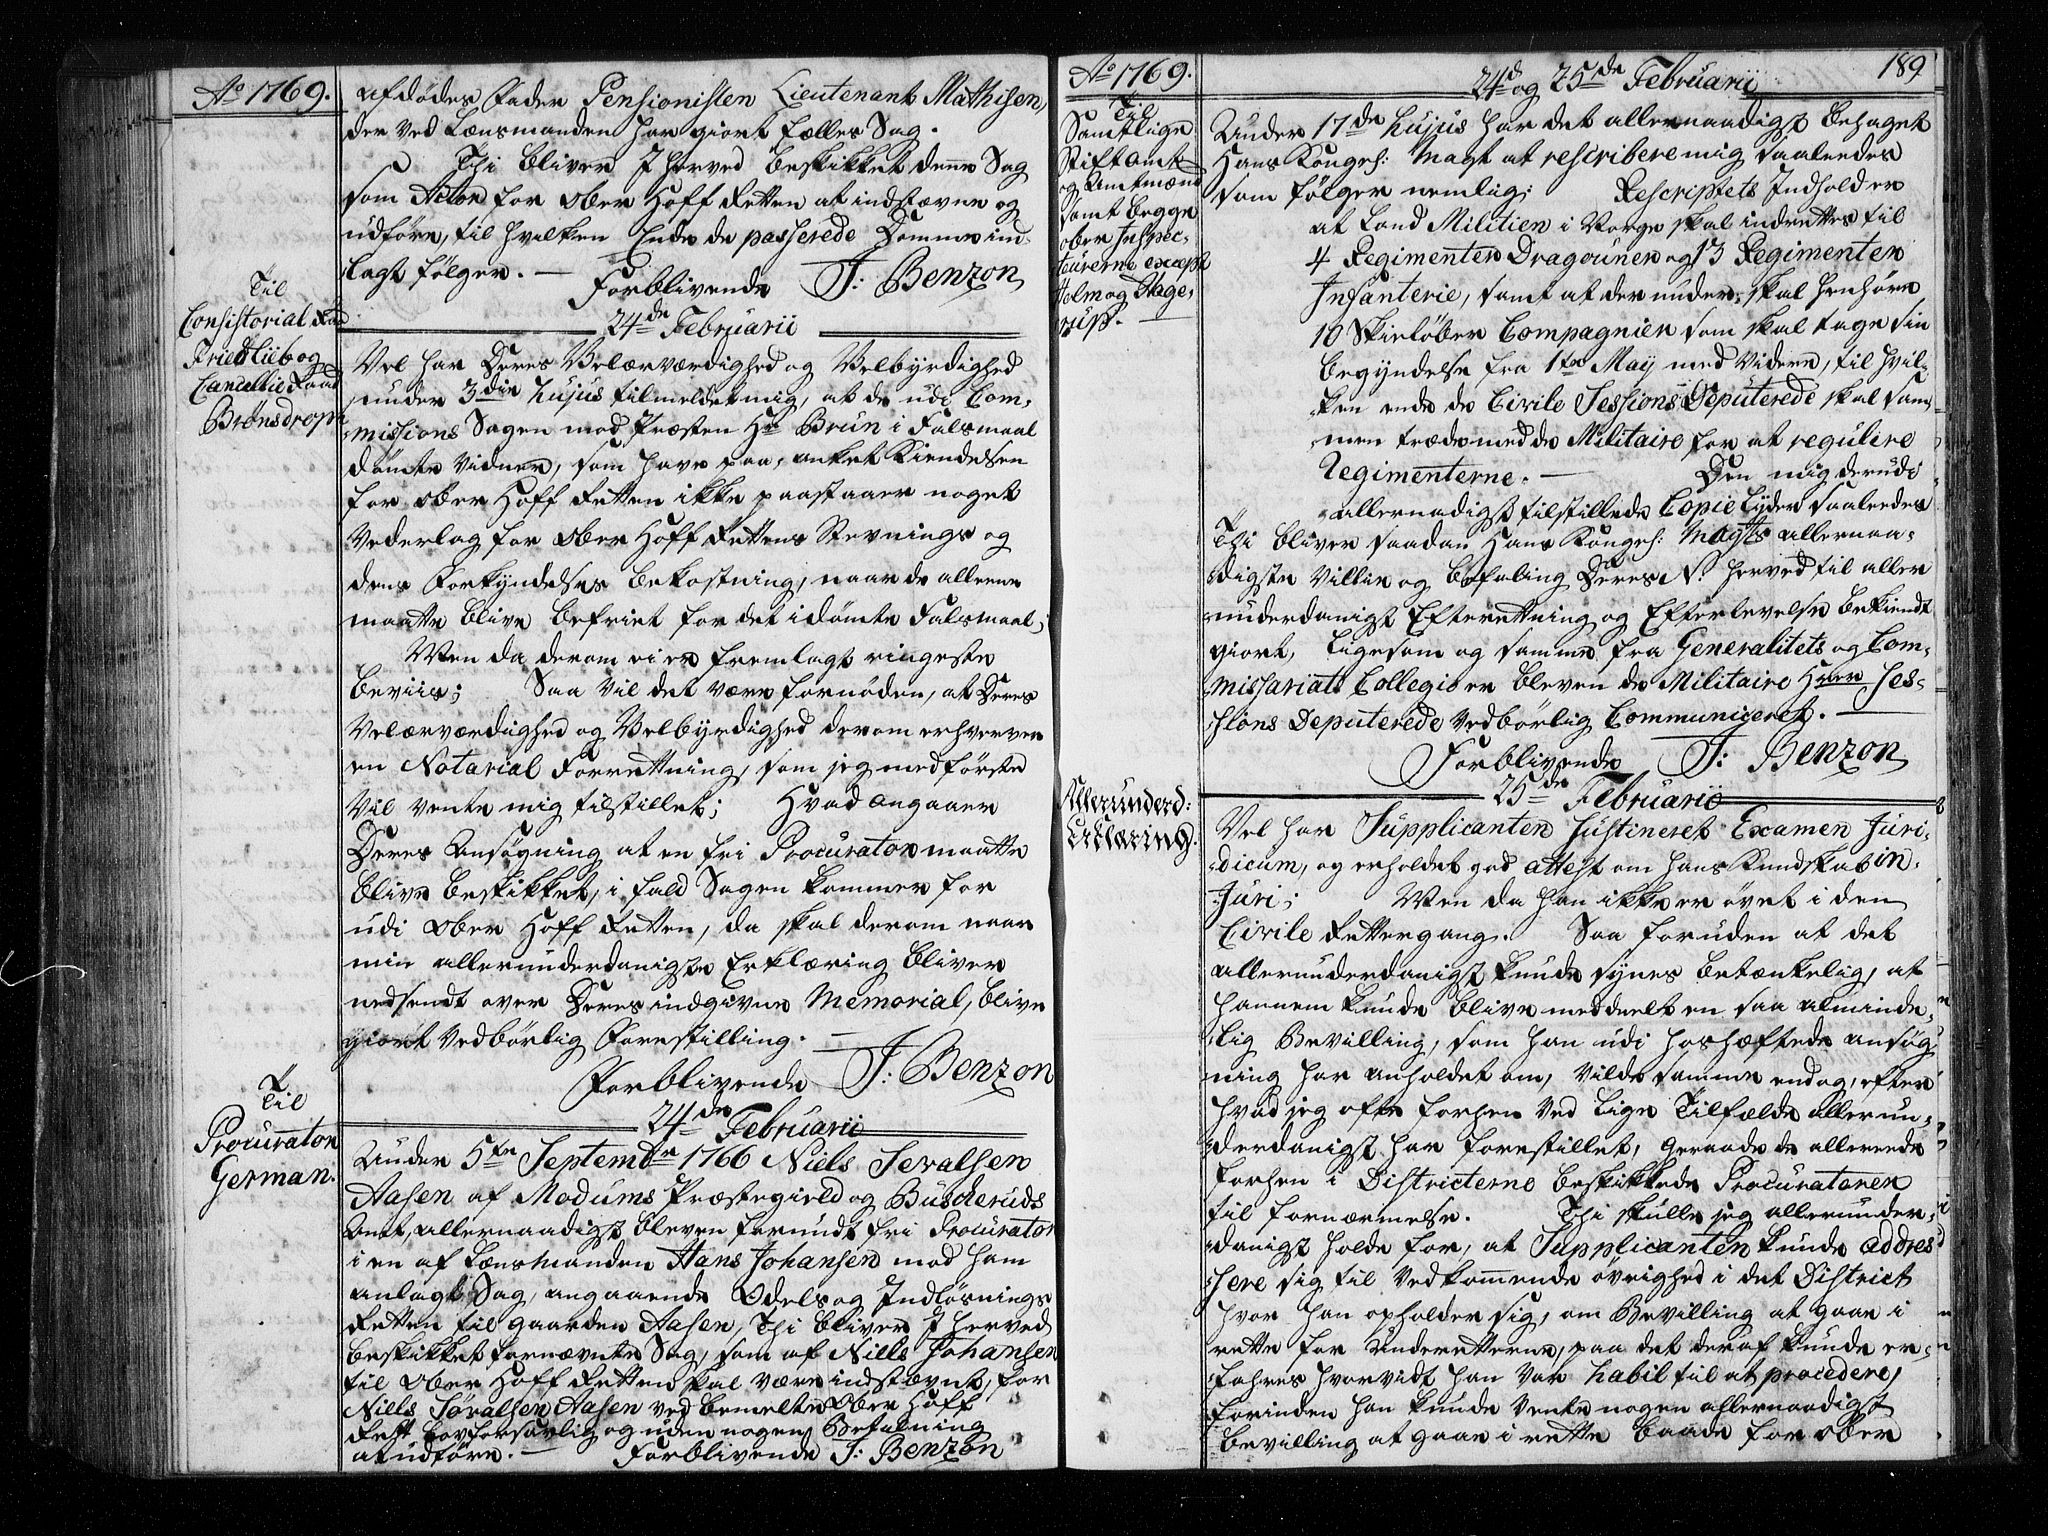 Ao 1769.
afdødes Fader Pensionisten Lieutenant Mathisen,
der ved Lensmanden har giort fælles Sag.
Thi bliver I herved beskikket denne Sag
som Actor for Ober Hoff Retten at indstævne og
udføre, til hvilken Ende de passerede Domme ind-
lagt følger. — Forblivende J: Benzon
24de Februarii
Til
Consistorial Raad
Friedlieb og
Cancellie Raad
Brønsdroph
Vel har Deres Velærværdighed og Velbyrdighed
under 3die hujus tilmeldet mig, at de udi Com-
missions Sagen mod Præsten Hr Brun i Falsmaal
dømte Vidner, som have paa-anket Kiendelsen
for Ober Hoff Retten ikke paastaaer noget
Vederlag for Ober Hoff Rettens Stevnings og
dens Forkyndelses bekostning, naar de alleene
maatte blive befriet for det idømte Falsmaal;
Men da derom ei er fremlagt ringeste
beviis; Saa vil det være fornøden, at Deres
Velærværdighed og Velbyrdighed derom erhverver
en Notarial Forrettning, som jeg med første
vil vente mig tilstillet; Hvad angaaer
Deres Ansøgning at en fri Procurator maatte
blive beskikket, i fald Sagen kommer for
udi Ober Hoff Retten, da skal derom naar
min allerunderdanigste Erklæring bliver
nedsendt over Deres indgivne Memorial, blive
giort vedbørlig Forestilling. —
Forblivende J: Benzon
24de Februarii
Til
Procurator
German.
Under 5te Septembr 1766 Niels Sevalsen
Aasen af Modums Præstegield og Buscheruds
Amt, allernaadigst bleven forundt fri Procurator
i en af Lensmanden Hans Johansen mod ham
anlagt Sag, angaaende Odels og Indløsnings
Retten til gaarden Aasen, Thi bliver I herved
beskikket fornævnte Sag, som af Niels Johansen
til Ober Hoff Retten skal være indstævnt, for
Niels Søvalsen Aasen ved bemelte Ober Hoff
Rett lovforsvarlig og uden nogen Betalning
at udføre. — Forblivende J: Benzon
Ao 1769.
24d og 25de Februarii
189
Til
Samtlige
Stiftamt
og Amtmænd
samt begge
ober Inspec-
teurerne except
Holm og Stage-
rup. —
Under 17de hujus har det allernaadigst behaget
Hans Kongel: Magt at rescribere mig saaledes
som følger nemlig: Rescriptets Indhold er
at Land Militien i Norge skal indrettes til
4 Regimenter Dragouner og 13 Regimenter
Infanterie, samt at derunder skal henhøre
10 Skieløber Compagnier som skal tage sin
begyndelse fra 1te May med videre, til hvil-
ken ende de Civile Sessions Deputerede skal sam-
men træde med de Militaire for at regulere
Regimenterne. — Den mig derudi
allernadigst tilstillede Copie lyder saaledes
Thi bliver saadan Hans Kongel: Magts allernaa-
digste Villie og befaling Deres N. herved til aller
underdanigst Efterettning og Efterlevelse bekiendt
giort, ligesom og samme fra Generalitets og Com-
missariats Collegio er bleven de Militaire Hrer Ses-
sions Deputerede vedbørlig Communiceret. —
Forblivende J: Benzon
25de Februarii
Allerunderd:
Erklæring.
Vel har Supplicanten Justineret Examen Juri-
dicum, og erholdet god attest om hans Kundskab in
Juri; Men da han ikke er øvet i den
Civile Rettergang. Saa foruden at det
allerunderdanigst kunde synes betænkelig, at
hannem kunde blive meddeelt en saa alminde-
lig Bevilling, som han udi hoshæftede ansøg-
ning har anholdet om, vilde samme endog, efter
hvad jeg ofte forhen ved lige Tilfælde allerun-
derdanigst har forestillet, geraade de allerede
forhen i Districterne beskikkede Procuratorer
til fornærmelse. Thi skulle jeg allerunder-
danigst holde for, at Supplicanten kunde addres
sere sig til vedkommende øvrighed i det District
hvor han opholder sig, om Bevilling at gaae i
rette for Underretterne, paa det deraf kunde er-
fahres hvorvidt han var habil til at procedere,
forinden han kunde vente nogen allernaadigst
bevilling at gaae i rette baade for Ober